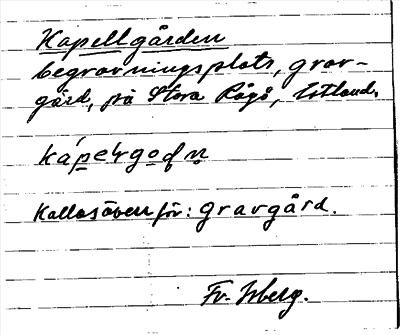 Kapellgården
begravningsplats, grav-
gård, på Stora Rågö, Estland.
kapelgoḍṇ
Kallas även för: gravgård.
Fr. Isberg.